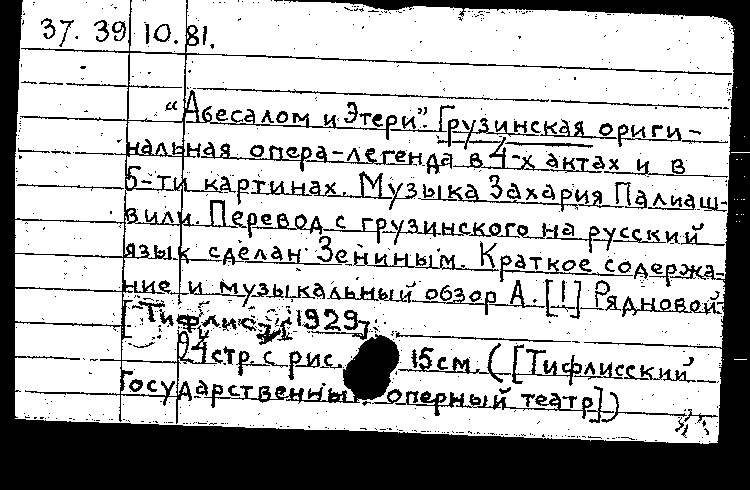 37. 39. 10. 81.
"Абесалом и Этери". Грузинская ориги-
нальная опера-легенда в 4-х актах и в
5-ти картинах. Музыка Захария Палиаш-
вили. Перевод с грузинского на русский
язык сделан Зениным. Краткое содержа-
ние и музыкальный обзор А. [!] Рядновой.
[Тифлис, 1929]
24 стр. с рис. 15 см. ([Тифлисский
Государственный оперный театр])